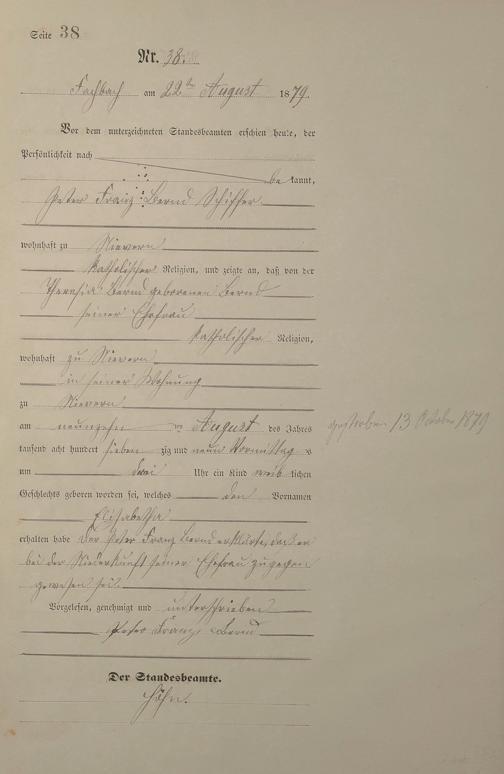 Seite 38
Nr. 38.
Fachbach am 22ten August 1879.
Vor dem unterzeichneten Standesbeamten erschien heute, der
Persönlichkeit nach
be kannt,
Peter Franz Bernd Schiffer
wohnhaft zu Nievern
katholischer Religion, und zeigte an, daß von der
Theresia Bernd geborenen Bernd
seiner Ehefrau
katholischer Religion,
wohnhaft zu Nievern
in seiner Wohnung
zu Nievern
am neunzehn ten August des Jahres
tausend acht hundert sieben zig und neun Vormittag s
um drei Uhr ein Kind weib lichen
Geschlechts geboren worden sei, welches den Vornamen
Elisabetha
erhalten habe Der Peter Franz Bernd erklärte, das er
bei der Niederkunft seiner Ehefrau zugegen
gewesen sei.
Vorgelesen, genehmigt und unterschrieben
Peter Franz Bernd
Der Standesbeamte.
Höhn.
gestorben 13 October 1879